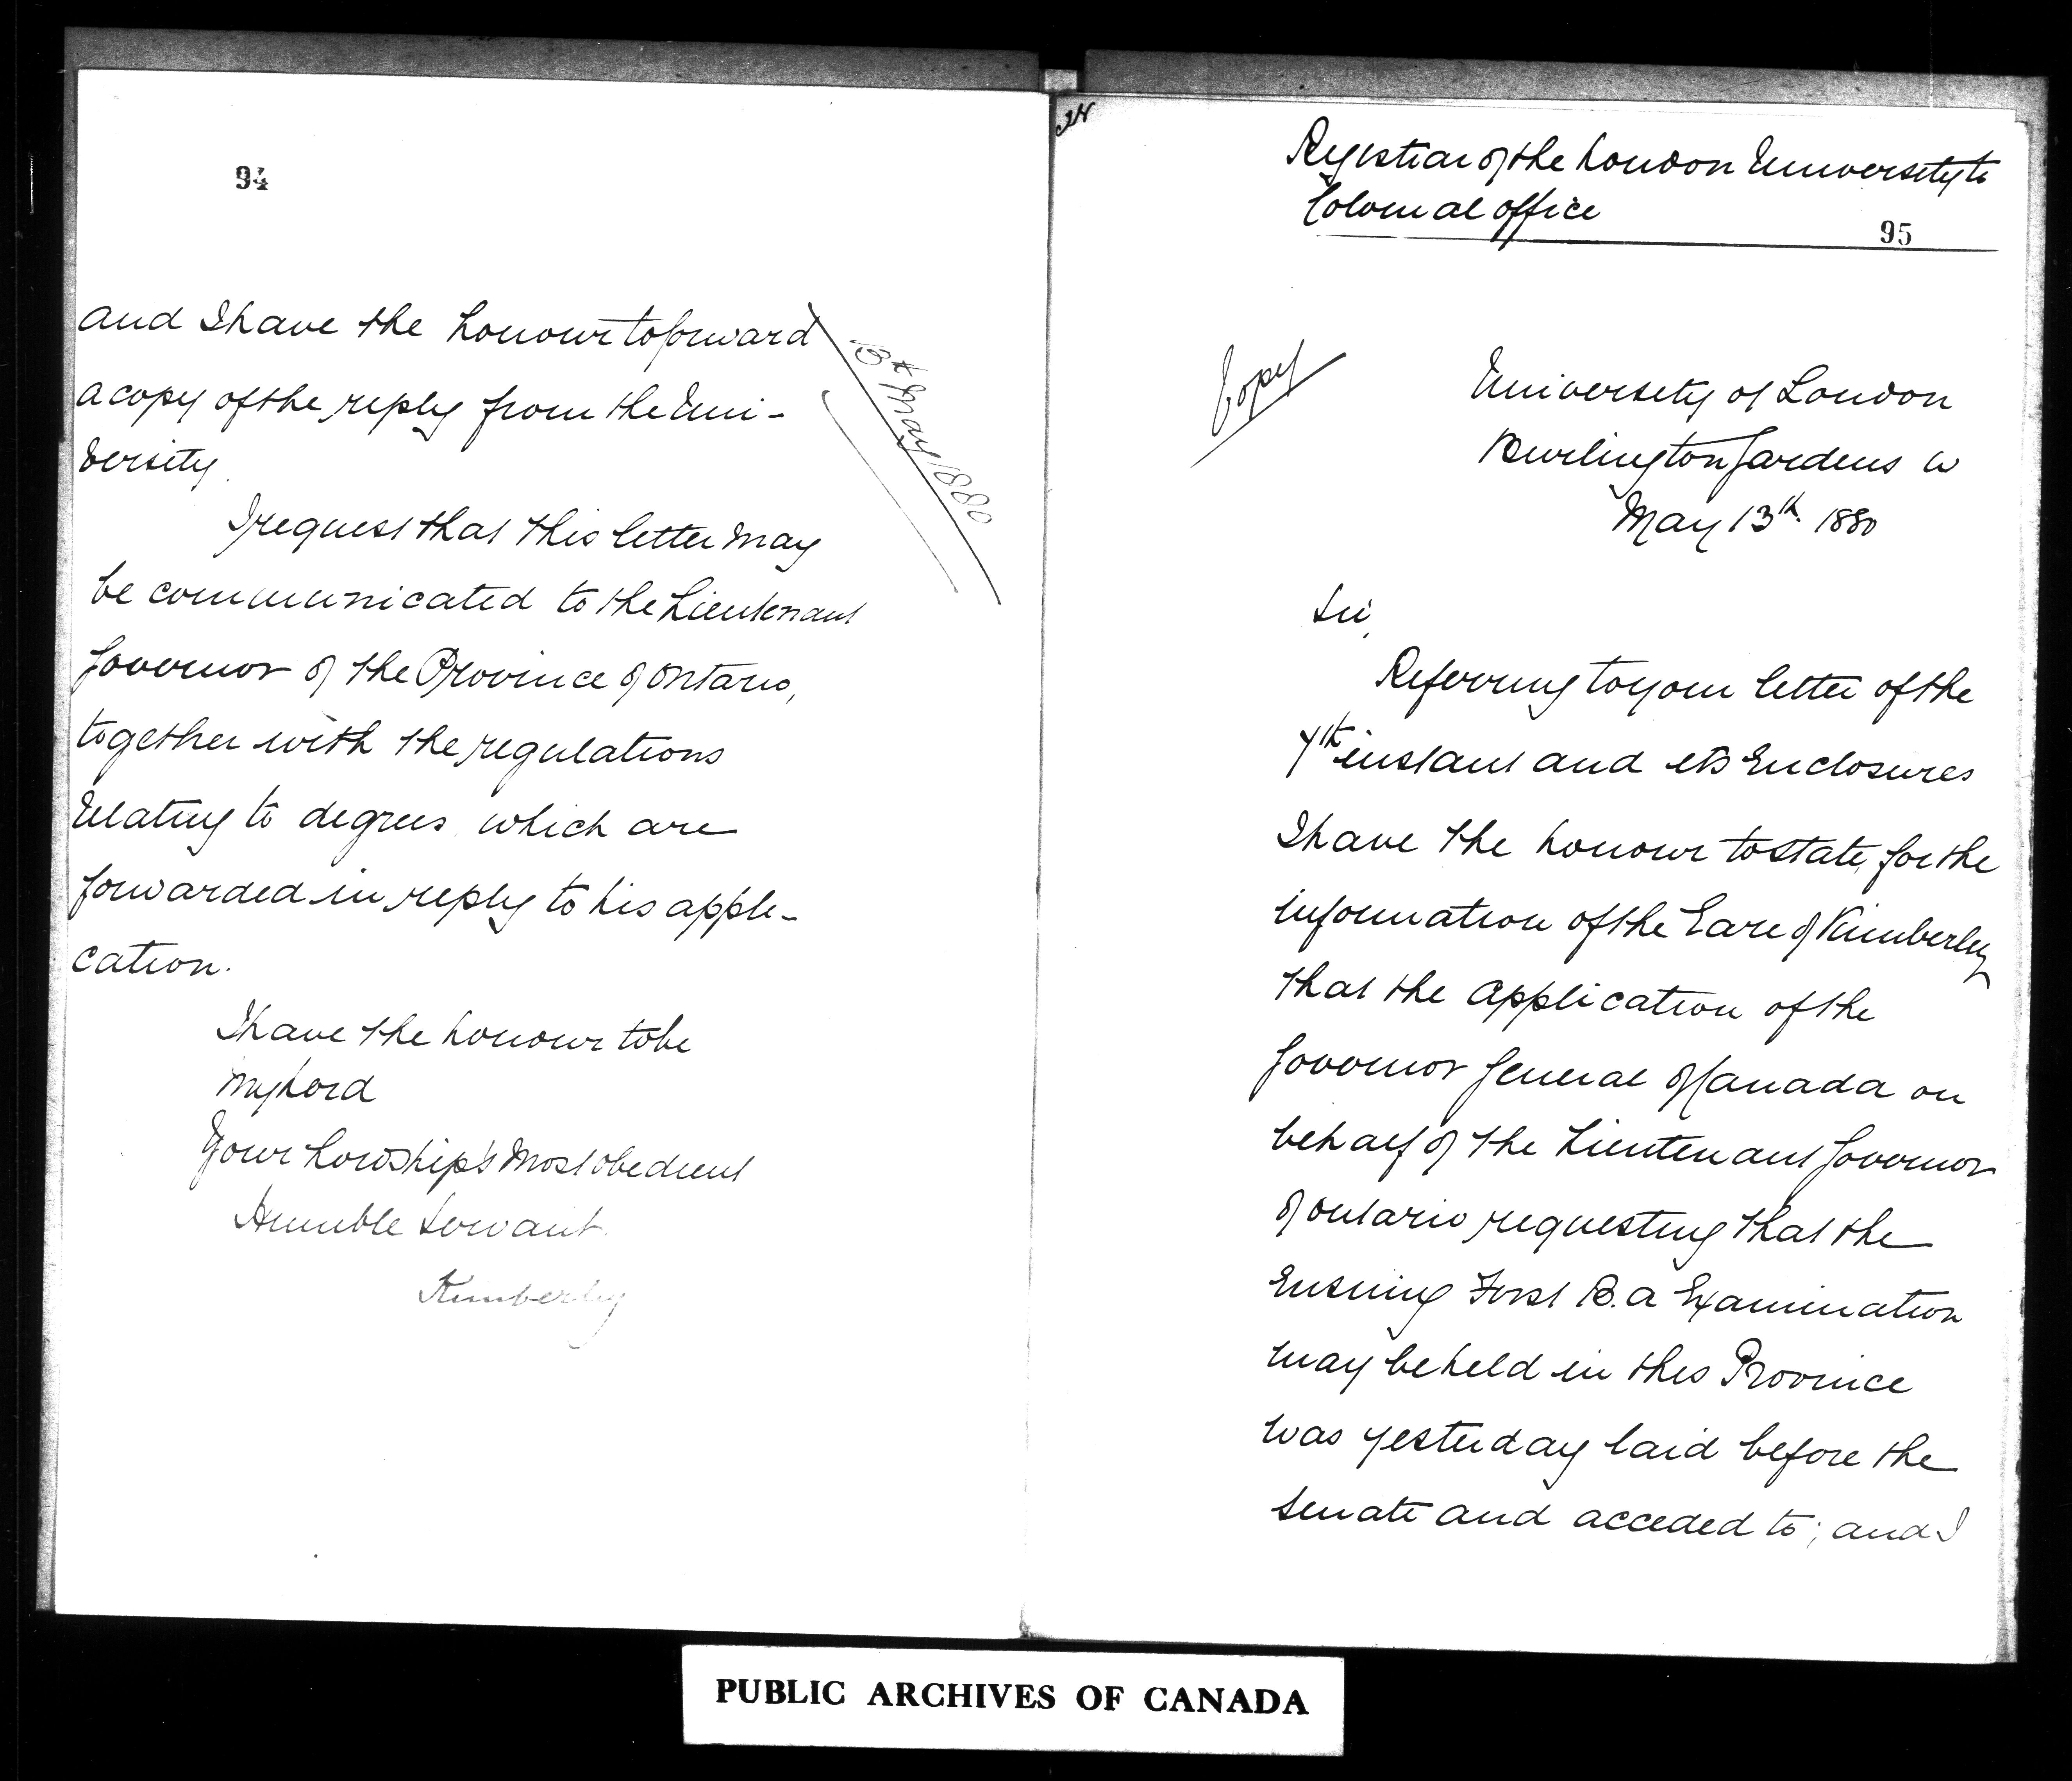 94
and I have the honour to forward
a copy of the reply from the Uni-
versity.
13th May 1880
I request that this letter may
be communicated to the Lieutenant
Governor of the Province of Ontario,
together with the regulations
relating to degrees which are
forwarded in reply to his appli-
cation.
I have the honour to be
My Lord
Your Lordship's Most obedient
Humble Servant
Kimberley
Registrar of the London University to
Colonial office
95
Copy
University of London
Burlington Gardens W
May 13th. 1880
Sir,
Referring to your letter of the
7th instant and its Enclosures
I have the honour to state, for the
information of the Earl of Kimberley
that the application of the
Governor General of Canada on
behalf of the Lieutenant Governor
of Ontario requesting that the
Ensuing First B.A Examination
may be held in this Province
was yesterday laid before the
Senate and acceded to; and I
PUBLIC ARCHIVES OF CANADA